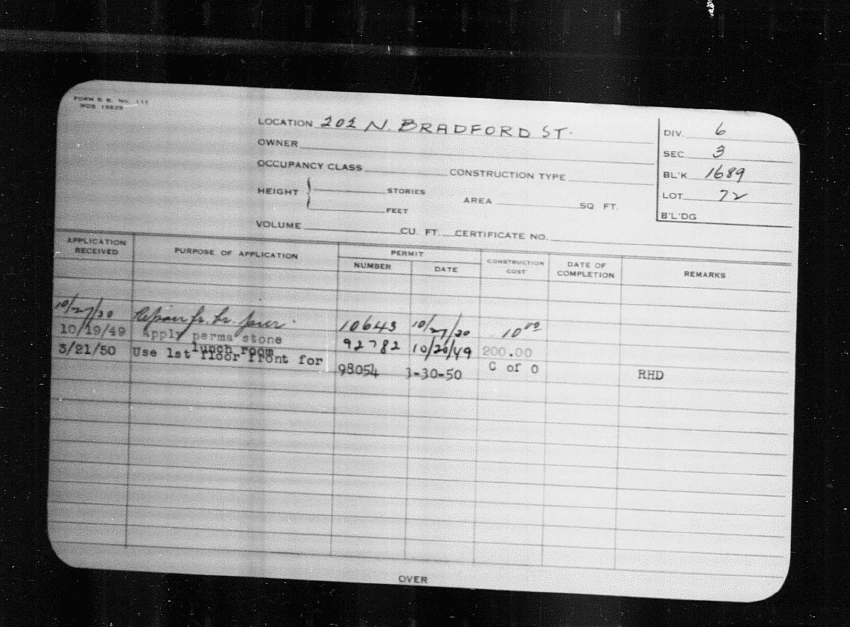 FORM B. E. No. 111
LOCATION 202 N. BRADFORD ST.
OWNER
OCCUPANCY CLASS CONSTRUCTION TYPE
HEIGHT STORIES
FEET
AREA SQ. FT.
VOLUME CU. FT. CERTIFICATE NO.
DIV. 6
SEC. 3
BL'K 1689
LOT 72
B'L'DG
APPLICATION RECEIVED PURPOSE OF APPLICATION PERMIT NUMBER DATE CONSTRUCTION COST DATE OF COMPLETION REMARKS
10/27/20 Repair fr. 10643 10/27/20 10.00
10/19/49 Apply perma stone 92782 10/20/49 200.00
lunch room
3/21/50 Use 1st floor front for 98054 3-30-50 C of O RHD
OVER